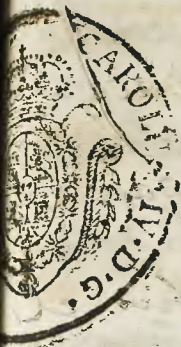 CAROLUS IV·D·G·